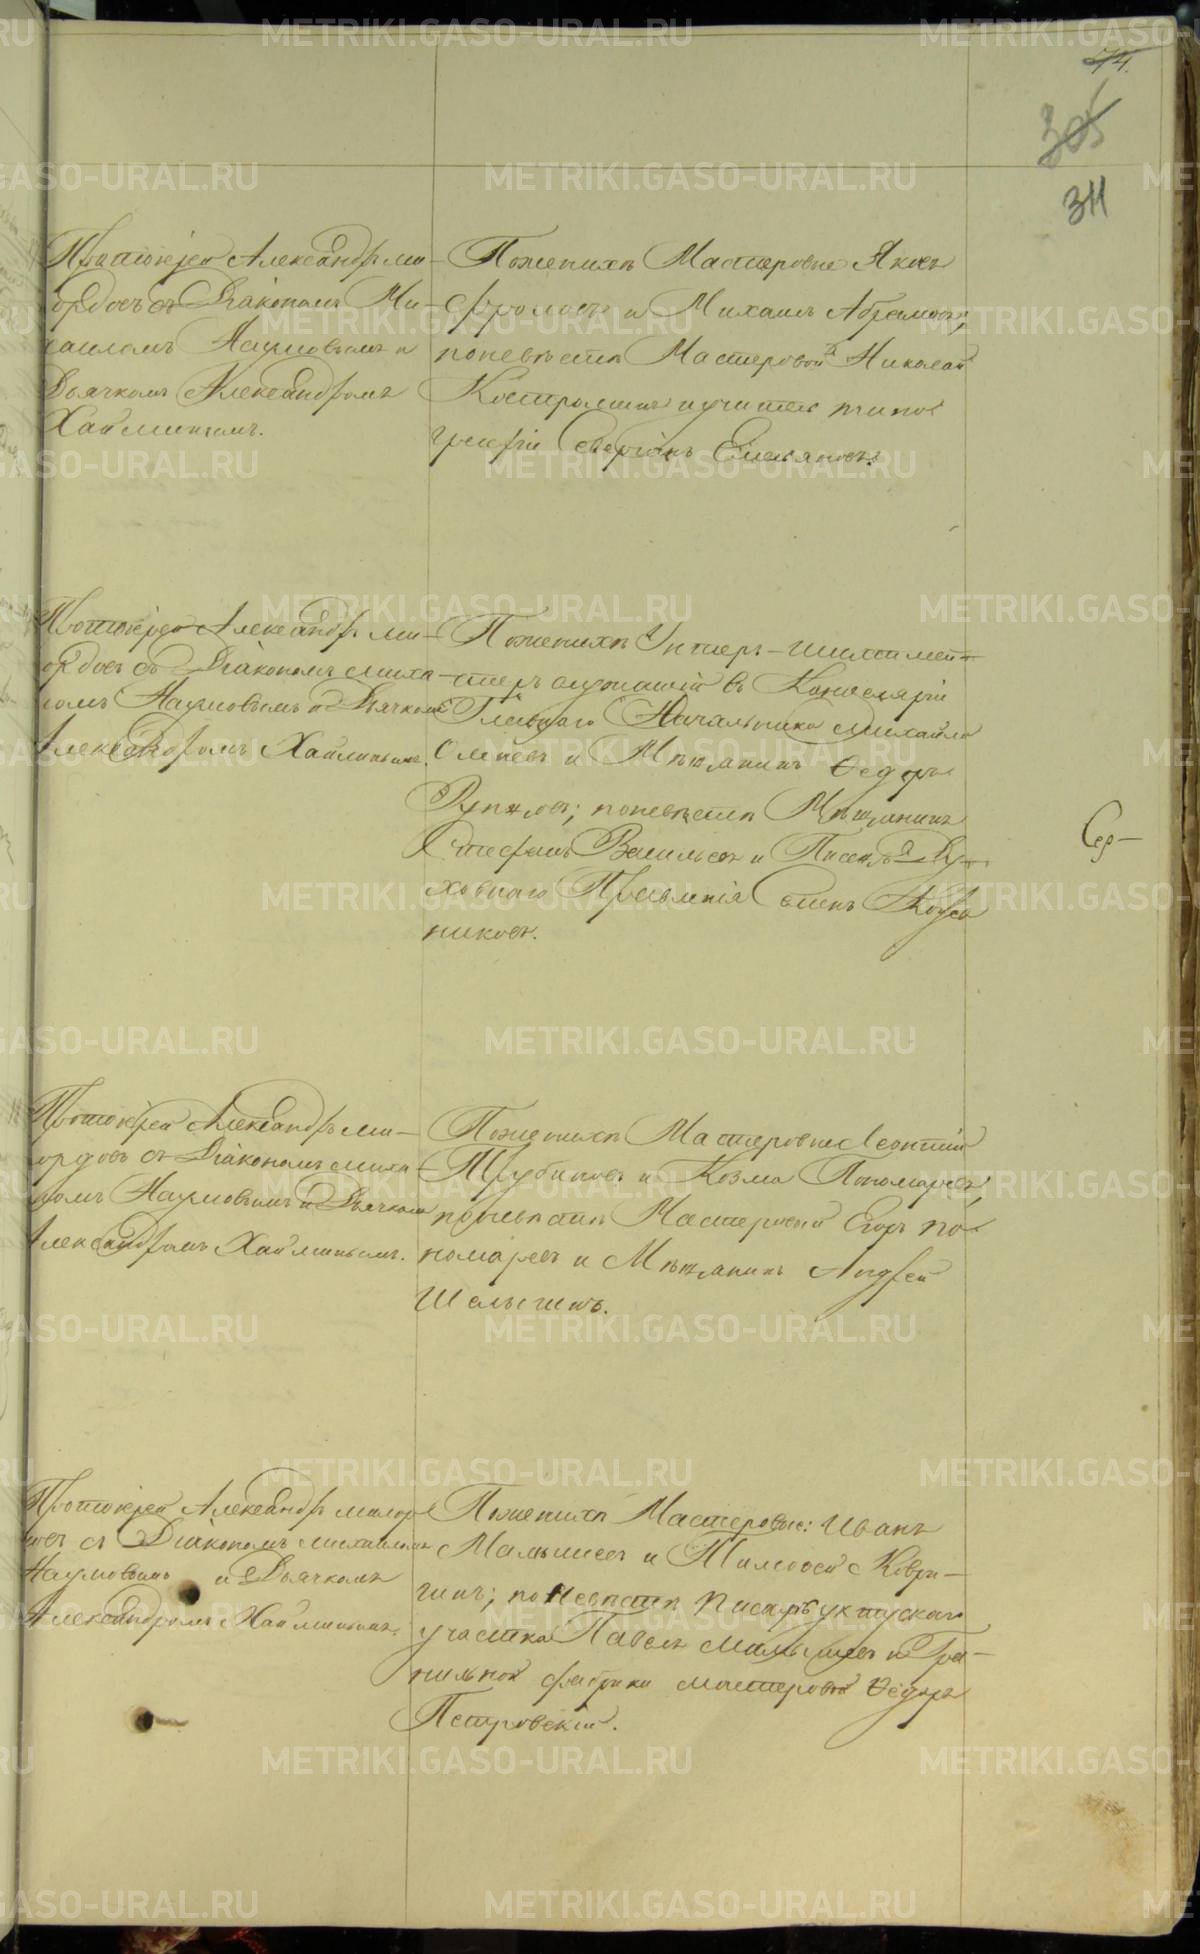 74.
305
311
Протоіерей Александръ Ми-
ордовъ съ Діакономъ Ми-
хаиломъ Наумовымъ и
Дьячкомъ Александромъ
Хаминымъ.
Поженихѣ Мастеровые Яковъ
Фроловъ и Михаилъ Абрамовъ;
поневѣстѣ Мастеровой Николай
Костроминъ и учитель типо
графіи Северіянъ Емельяновъ.
Протоіерей Александръ Ми-
ордовъ съ Діакономъ Миха-
иломъ Наумовымъ и Дьячкомъ
Александромъ
Поженихѣ Унтеръ-шихтмей-
стеръ служащій въ Канцеляріи
Главнаго Начальника Михайло
и Мѣщанинъ Ѳедоръ
поневѣстѣ Мѣщанинъ
Стефанъ Васильевъ и Писецъ Ду-
ховнаго Правленія
никовъ.
Сер-
Протоіерей Александръ Ми-
ордовъ съ Діакономъ Миха-
иломъ Наумовымъ и Дьячкомъ
Александромъ
Поженихѣ Мастеровые Леонтій
Трубиновъ и Козма Пономаревъ,
поневѣстѣ Мастеровой Егоръ По-
номаревъ и Мѣщанинъ Андрей
Шалыгинъ.
Протоіерей Александръ Миор
довъ съ Діакономъ Михаиломъ
Наумовымъ и Дьячкомъ
Александромъ
Поженихѣ Мастеровые: Иванъ
Малышевъ и Тимофей Коври-
гинъ; поневѣстѣ Писарь Уктускаго
участка Павелъ Малышевъ и Гра-
нильной фабрики мастеровой Ѳедоръ
Петровскій.
METRIKI.GASO-URAL.RU